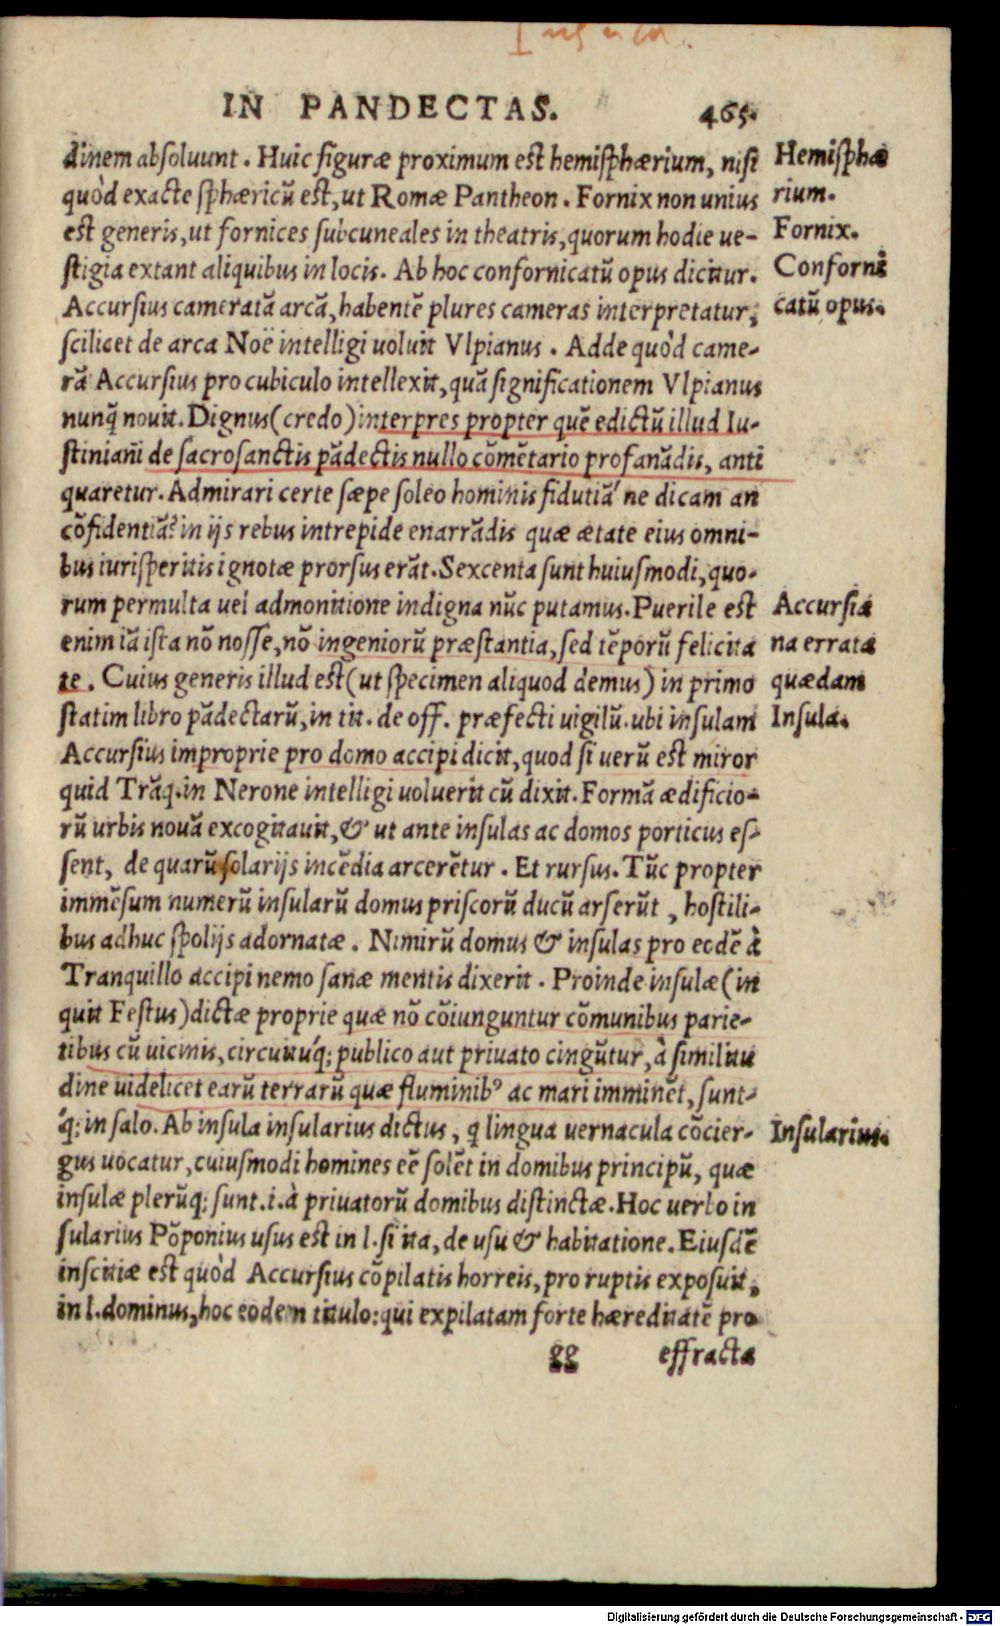 IN PANDECTAS. 465.
dinem absoluunt. Huic figuræ proximum est hemisphærium, nisi
quòd exacte sphæricũ est, ut Romæ Pantheon. Fornix non unius
est generis, ut fornices subcuneales in theatris, quorum hodie ue-
stigia extant aliquibus in locis. Ab hoc confornicatũ opus dicitur.
Accursius cameratã arcã, habentẽ plures cameras interpretatur,
scilicet de arca Noë intelligi uoluit Vlpianus. Adde quòd came-
rã Accursius pro cubiculo intellexit, quã significationem Vlpianus
nunq̃ nouit. Dignus (credo) interpres propter quẽ edictũ illud Iu-
stiniani de sacrosanctis pãdectis nullo cõmẽtario profanãdis, anti
quaretur. Admirari certe sæpe soleo hominis fidutiã ne dicam an
cõfidentiã? in ijs rebus intrepide enarrãdis quæ ætate eius omni-
bus iurisperitis ignotæ prorsus erãt. Sexcenta sunt huiusmodi, quo-
rum permulta uel admonitione indigna nũc putamus. Puerile est
enim iã ista nõ nosse, nõ ingeniorũ præstantia, sed tẽporũ felicita
te. Cuius generis illud est (ut specimen aliquod demus) in primo
statim libro pãdectarũ, in tit. de off. præfecti uigilũ. ubi insulam
Accursius improprie pro domo accipi dicit, quod si uerũ est miror
quid Trãq. in Nerone intelligi uoluerit cũ dixit. Formã ædificio-
rũ urbis nouã excogitauit, & ut ante insulas ac domos porticus es-
sent, de quarũ solarijs incẽdia arcerẽtur. Et rursus. Tũc propter
immẽsum numerũ insularũ domus priscorũ ducũ arserũt, hostili-
bus adhuc spolijs adornatæ. Nimirũ domus & insulas pro eodẽ à
Tranquillo accipi nemo sanæ mentis dixerit. Proinde insulæ (in
quit Festus) dictæ proprie quæ nõ cõiunguntur cõmunibus parie-
tibus cũ uicinis, circuituq́; publico aut priuato cingũtur, à similitu
dine uidelicet earũ terrarũ quæ fluminibꝰ ac mari imminẽt, sunt-
q́; in salo. Ab insula insularius dictus, q lingua uernacula cõcier-
gus uocatur, cuiusmodi homines eẽ solẽt in domibus principũ, quæ
insulæ plerũq; sunt. i. à priuatorũ domibus distinctæ. Hoc uerbo in
sularius Põponius usus est in l. si ita, de usu & habitatione. Eiusdẽ
inscitiæ est quòd Accursius cõpilatis horreis, pro ruptis exposuit,
in l. dominus, hoc eodem titulo: qui expilatam forte hæreditatẽ pro
gg effracta
Hemisphæ
rium.
Fornix.
Conforni
catũ opus.
Accursia
na errata
quædam
Insula.
Insularius.
Digitalisierung gefördert durch die Deutsche Forschungsgemeinschaft - DFG